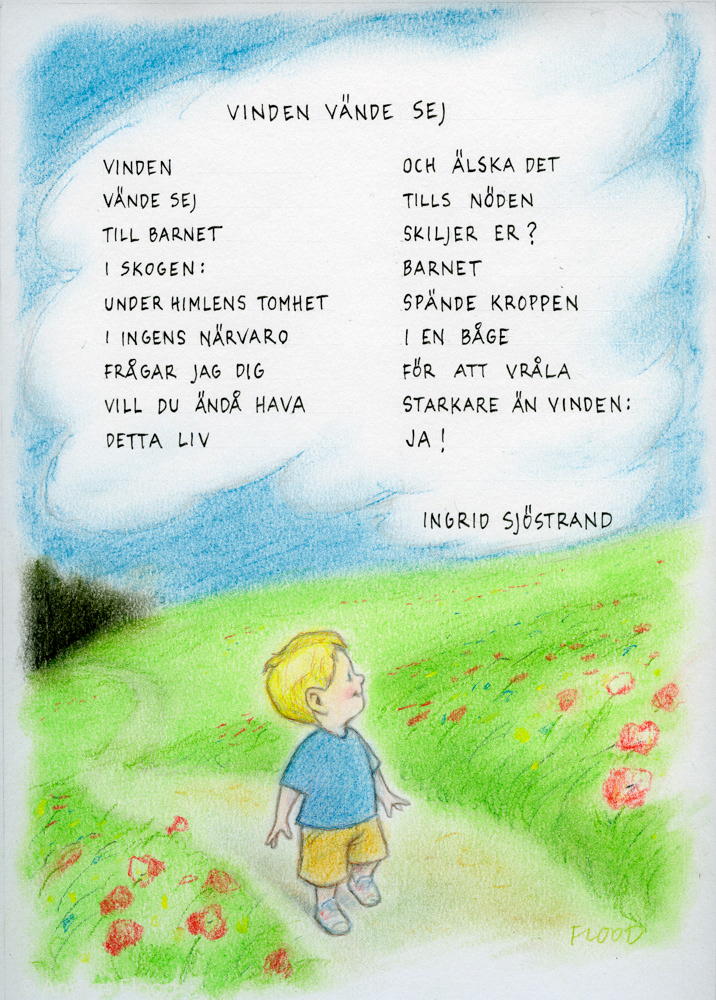 VINDEN VÄNDE SEJ
VINDEN
VÄNDE SEJ
TILL BARNET
I SKOGEN:
UNDER HIMLENS TOMHET
I INGENS NÄRVARO
FRÅGAR JAG DIG
VILL DU ÄNDÅ HAVA
DETTA LIV
OCH ÄLSKA DET
TILLS NÖDEN
SKILJER ER?
BARNET
SPÄNDE KROPPEN
I EN BÅGE
FÖR ATT VRÅLA
STARKARE ÄN VINDEN:
JA!
INGRID SJÖSTRAND
FLOOD